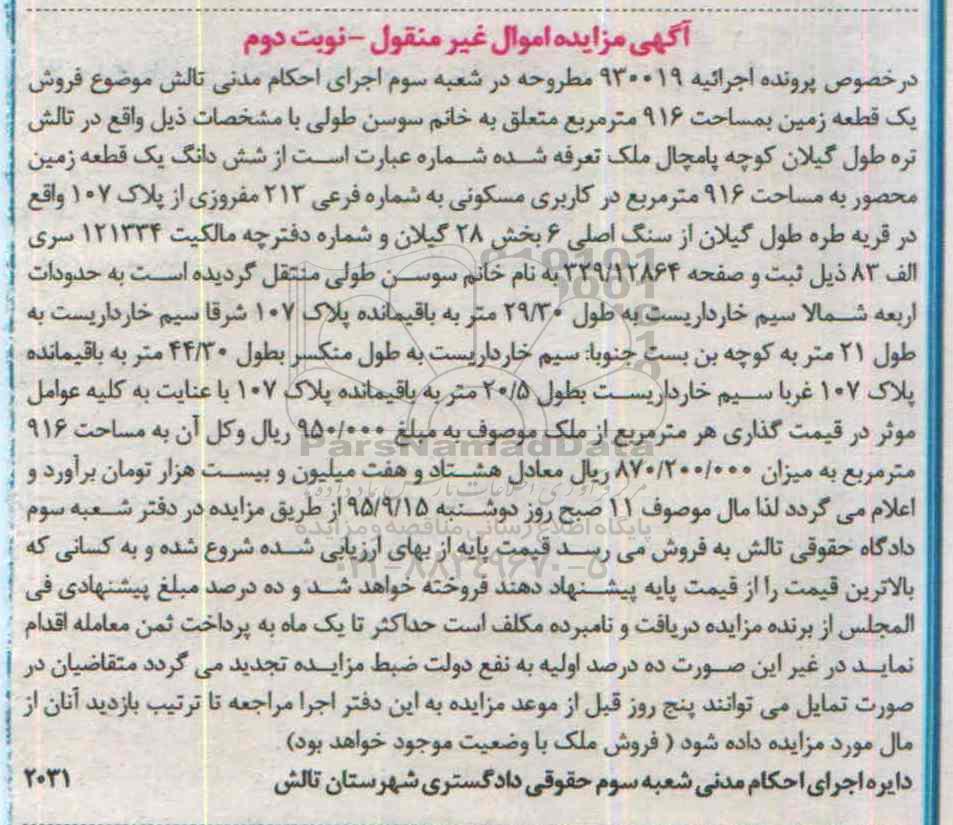 آگهی مزایده اموال غیر منقول - نوبت دوم
در خصوص پرونده اجرائیه ۹۳۰۰۱۹ مطروحه در شعبه سوم اجرای احکام مدنی تالش موضوع فروش
یک قطعه زمین بمساحت ۹۱۶ مترمربع متعلق به خانم سوسن طولی با مشخصات ذیل واقع در تالش
تره طول گیلان کوچه پامچال ملک تعرفه شده شماره عبارت است از شش دانگ یک قطعه زمین
محصور به مساحت ۹۱۶ مترمربع در کاربری مسکونی به شماره فرعی ۲۱۳ مفروزی از پلاک ۱۰۷ واقع
در قریه طره طول گیلان از سنگ اصلی ۶ بخش ۲۸ گیلان و شماره دفترچه مالکیت ۱۲۱۳۳۴ سری
الف ۸۳ ذیل ثبت و صفحه ۳۲۹/۱۲۸۶۴ به نام خانم سوسن طولی منتقل گردیده است به حدودات
اربعه شمالا سیم خارداریست به طول ۲۹/۳۰ متر به باقیمانده پلاک ۱۰۷ شرقا سیم خارداریست به
طول ۲۱ متر به کوچه بن بست جنوبا: سیم خارداریست به طول منکسر بطول ۴۴/۳۰ متر به باقیمانده
پلاک ۱۰۷ غربا سیم خارداریست بطول ۲۰/۵ متر به باقیمانده پلاک ۱۰۷ با عنایت به کلیه عوامل
موثر در قیمت گذاری هر مترمربع از ملک موصوف به مبلغ ۹۵۰/۰۰۰ ریال وکل آن به مساحت ۹۱۶
مترمربع به میزان ۸۷۰/۲۰۰/۰۰۰ ریال معادل هشتاد و هفت میلیون و بیست هزار تومان برآورد و
اعلام می گردد لذا مال موصوف ۱۱ صبح روز دوشنبه ۹۵/۹/۱۵ از طریق مزایده در دفتر شعبه سوم
دادگاه حقوقی تالش به فروش می رسد قیمت پایه از بهای ارزیابی شده شروع شده و به کسانی که
بالاترین قیمت را از قیمت پایه پیشنهاد دهند فروخته خواهد شد و ده درصد مبلغ پیشنهادی فی
المجلس از برنده مزایده دریافت و نامبرده مکلف است حداکثر تا یک ماه به پرداخت ثمن معامله اقدام
نماید در غیر این صورت ده درصد اولیه به نفع دولت ضبط مزایده تجدید می گردد متقاضیان در
صورت تمایل می توانند پنج روز قبل از موعد مزایده به این دفتر اجرا مراجعه تا ترتیب بازدید آنان از
مال مورد مزایده داده شود ( فروش ملک با وضعیت موجود خواهد بود)
دایره اجرای احکام مدنی شعبه سوم حقوقی دادگستری شهرستان تالش ۲۰۳۱
ParsNamadData
پایگاه اطلاع رسانی مناقصه و مزایده
۰۲۱-۸۸۳۴۹۶۷۰-۵